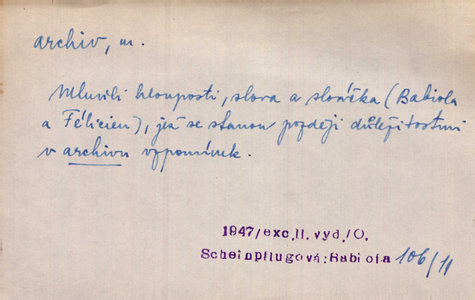 archiv, m.
Mluvili hlouposti, slova a slovíčka (Babiola
a Félicien), jež se stanou později důležitostmi
v archivu vzpomínek.
1947/exc.II.vyd./O.
Scheinpflugová:Babiola 106/11